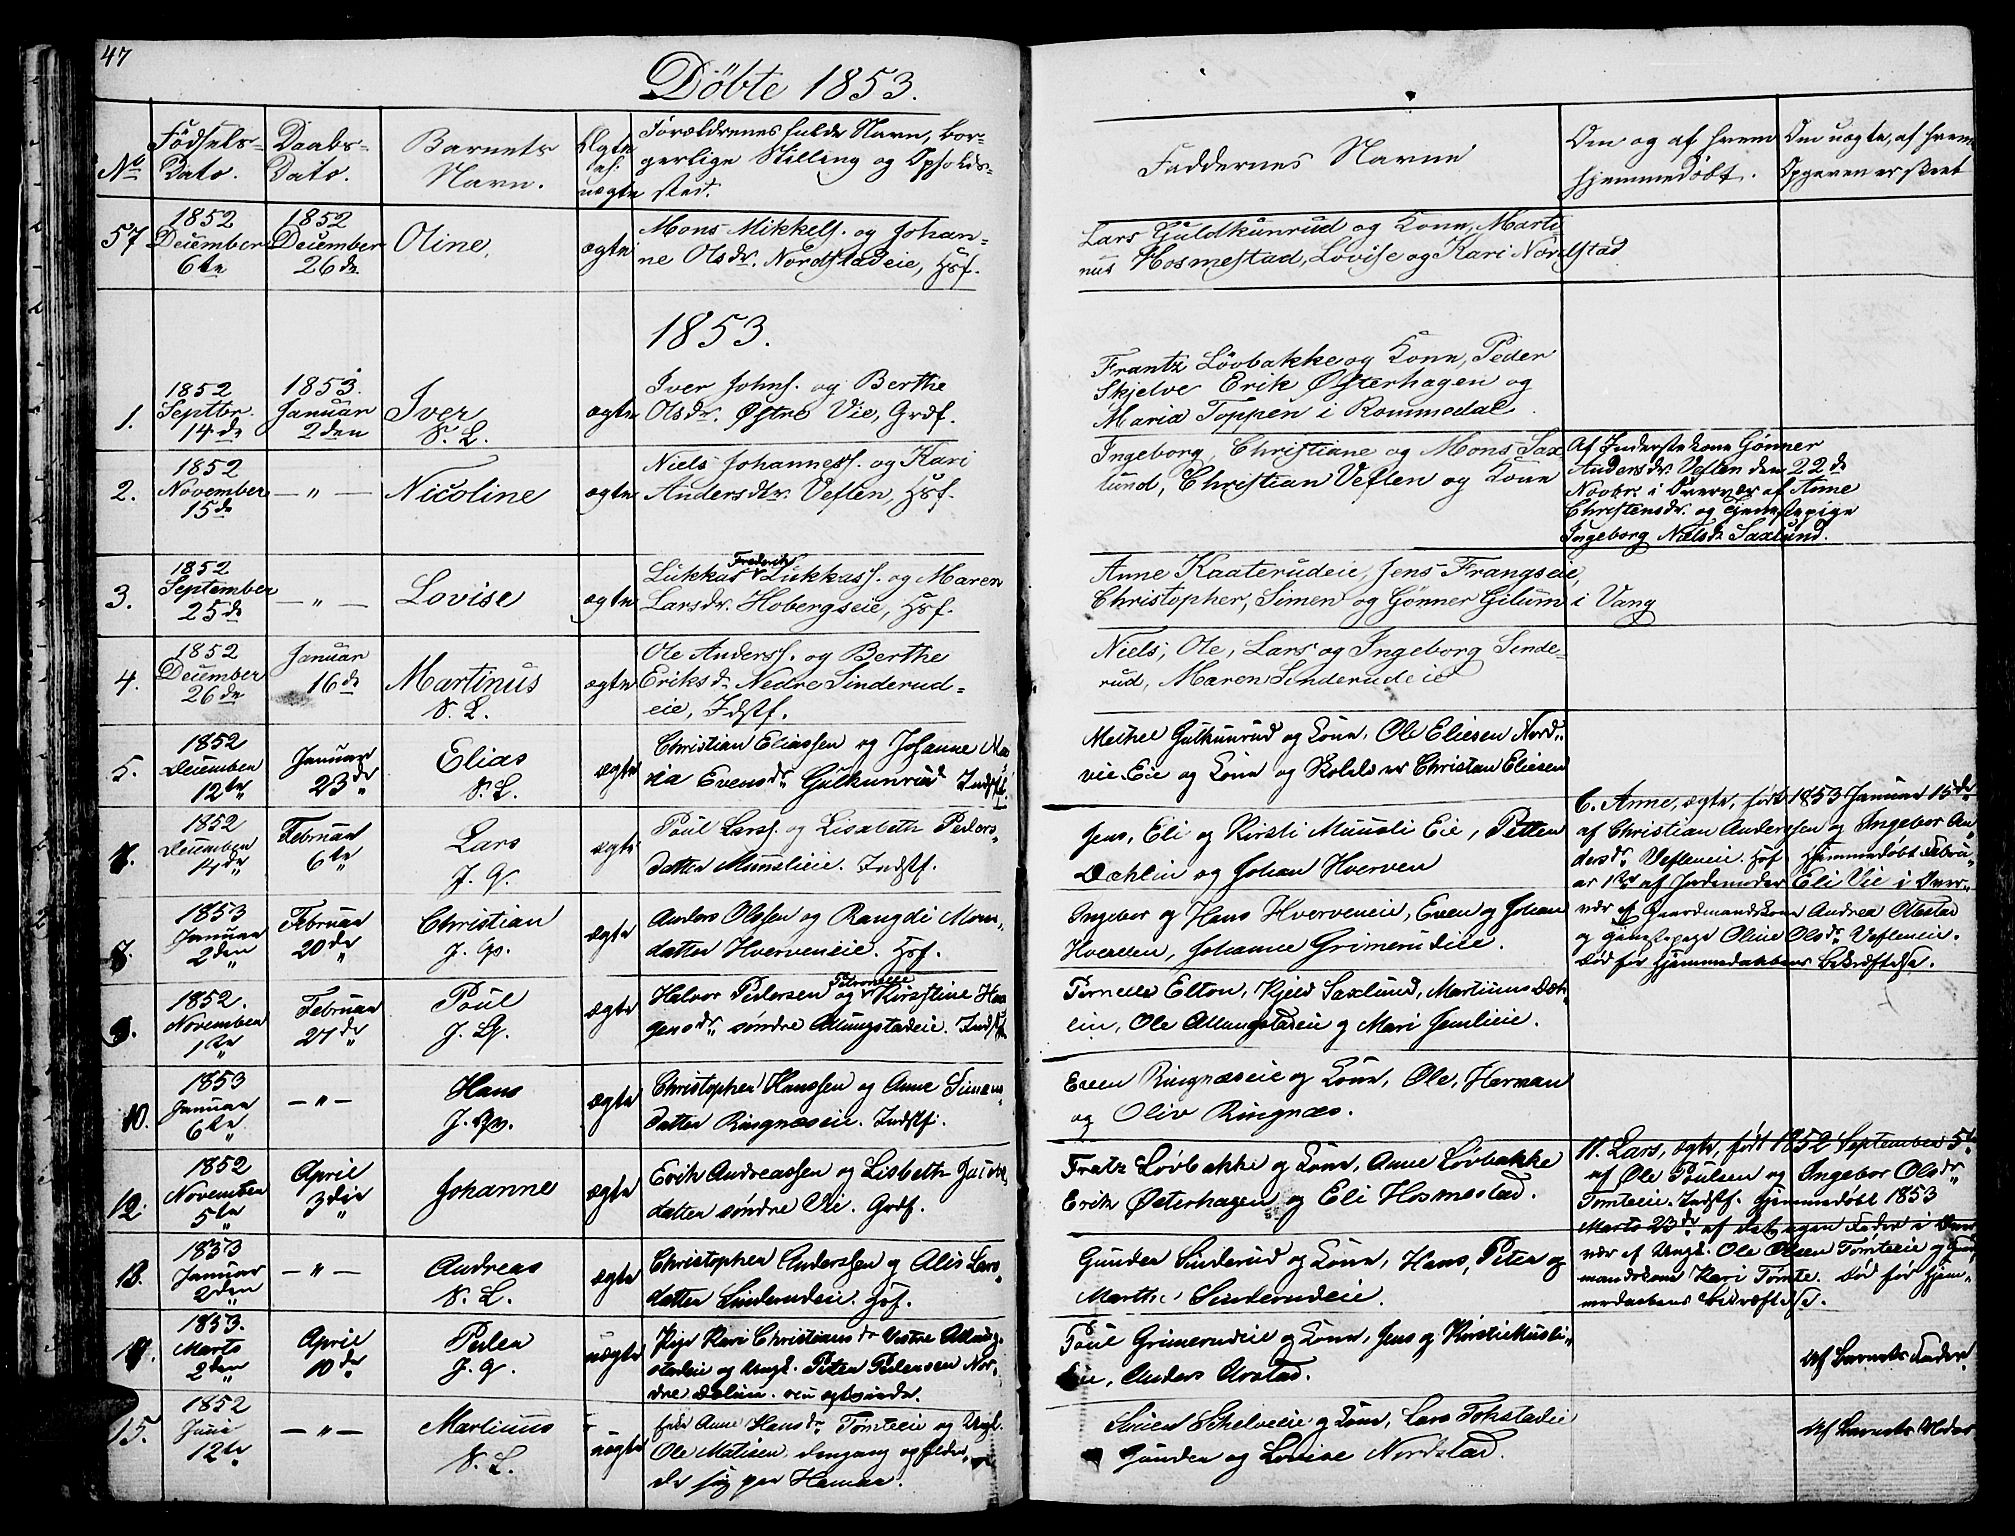 47
Döbte 1853.
No
Födsels-
Dato.
Daabs-
Dato.
Barnets
Navn.
Ægte
el:
uægte
Forældrenes fulde Navn, bor-
gerlige Stilling og Opholds-
sted.
Faddernes Navne
Om og af hvem
hjemmedøbt.
Om uægte, af hvem
Opgaven er skeet
57
1852
December
6te
1852
December
26de
Oline.
ægte
Mons Mikkels. og Johan-
ne Olsdr. Nordstadeie, Hsf.
Lars Guldkunrud og Kone, Marti-
nus Hosmestad, Lovise og Kari Nordstad
1853.
1.
1852
Septbr.
14de
1853.
Januar
2den
Iver
S. L.
ægte
Iver Johns. og Berthe
Olsdr. Østre Vie, Grdf.
Frantz Lövbakke og Kone, Peder
Skjelve Erik Østerhagen og
Maria Toppen i Rommedal.
2.
1852
November
15de
— " —
Nicoline
ægte
Niels Johanness. og Kari
Andersdtr. Veflen, Hsf.
Ingeborg, Christiane og Mons Sax
lund, Christian Veflen og Kone
Af Inderstekone Gønner
Andersdr. Veflen den 22de
Novbr. i Overvær af Anne
Christensdr. og Tjenestepige
Ingeborg Nielsdr. Saxlund.
3.
1852
September
25de
— " —
Lovise
ægte
Frederik
Lukkas Lukkass. og Maren
Larsdr. Hobergseie, Hsf.
Anne Kaaterudeie, Jens Frangseie,
Christopher, Simen og Gönner Gilum i Vang
4.
1852
December
26de
Januar
16de
Martinus
S. L.
ægte
Ole Anderss. og Berthe
Eriksd. Nedre Sinderud-
eie, Idstf.
Niels, Ole, Lars og Ingeborg Sinde-
rud, Maren Sinderudeie
5.
1852
December
12te
Januar
23de
Elias
S. L.
ægte
Christian Eliassen og Johanne Ma
ria Evensdr. Gulkunrud Indstf.
Mikkel Gulkunrud og Kone, Ole Eliesen Nord-
vie Eie og Kone og Skolelærer Christian Eliesen
7.
1852
December
14de
Februar
6te
Lars
J. G.
ægte
Poul Larss. og Lisabeth Peders-
datter Muuslieie. Indstf.
Jens, Eli og Kirsti Muusli Eie, Petter
Dæhlin og Johan Hverven
6. Anne, ægte, født 1853 Januar 15de
af Christian Anderssen og Ingebor An
dersdr. Vefleneie. Hsf. Hjemmedøbt Febru-
ar 1ste af Jordemoder Eli Vie i Over-
vær af Gaardmandskone Andrea Alestad
og tjenestepige Oline Olsdr. Vefleneie.
død før Hjemmedaabens Bekræftelse.
8.
1853
Januar
2den
Februar
20de
Christian
J. G.
ægte
Anders Olssen og Rangdi Mons-
datter Hverveneie. Hsf.
Ingebor og Hans Hverveneie, Even og Johan
Hverven, Johanne Grimerudeie.
9.
1852.
November
1ste
Februar
27de
Poul
J. G.
ægte
Petronelle
Halvor Pedersen og Kirstine Han
gensdr. søndre Alungstadeie. Indstf.
Pernelle Elton, Kjeld Saxlund, Martinus Dæh-
lin, Ole Allungstadeie og Mari Jemlieie.
10.
1853
Januar
6te
— " —
Hans
ægte
Christopher Hanssen og Anne Simens-
datter Ringnæseie. Indstf.
Even Ringnæseie og Kone, Ole, Herman
og Oliv Ringnæs.
12.
1852
November
5te
April
3die
Johanne
ægte
Erik Andreassen og Lisbeth Jacobs
datter søndre Vie. Grdf.
Fratz Løvbakke og Kone, Anne Løvbakke
Erik Østerhagen og Eli Hosmestad.
11. Lars, ægte, født 1852 September 5te
af Ole Poulsen og Ingebor Olsdr.
Tomteeie. Indstf. Hjemmedøbt 1853
Marts 23de af dets egen Fader i Over
vær af Ungk. Ole Olsen Tomteeie og Gaard
mandskone Kari Tomte. død før Hjem-
medaabens Bekræftelse.
13.
1853
Januar
2den
— " —
Andreas
S. L.
ægte
Christopher Anderssen og Alis Lars-
datter Sinderudeie. Hsf.
Gunder Sinderud og Kone, Hans, Peter og
Marthe Sinderudeie.
14.
1853.
Marts
2den
April
10de
Peder
J. G.
uægte
Pige Kari Christiansdr Vestre Allung-
stadeie og Ungk. Peter Pedersen Nor-
dre Dælin.
Poul Grimerudeie og Kone, Jens og Kirstie Musli-
eie, Anders Arstad.
Af Barnets Fader
15.
1852
Juni
12te
— " —
Martinus
S. L.
uægte
Anne Hansdr. Tomteeie og Ungk.
Ole Matisen
de sig paa Hamar.
Simen Skelveeie og Kone, Lars Tokstadeie
Gunder og Lovise Nordstad.
Af Barnets Moder